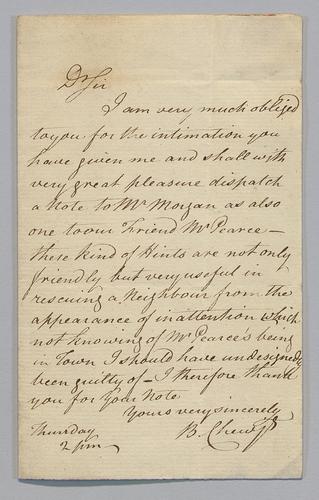 Dr Sir
I am very much obliged
to you for the intimation you
have given me and shall with
very great pleasure dispatch
a Note to Mr Morgan as also
one to our Friend Mr Pearce —
these kind of Hints are not only
friendly but very useful in
rescuing a Neighbour from the
appearance of inattention which
not knowing of Mr Pearce's being
in Town I should have undesignedly
been guilty of — I therefore thank
you for your Note
Yours very sincerely
Thursday B. Chew
2 pm